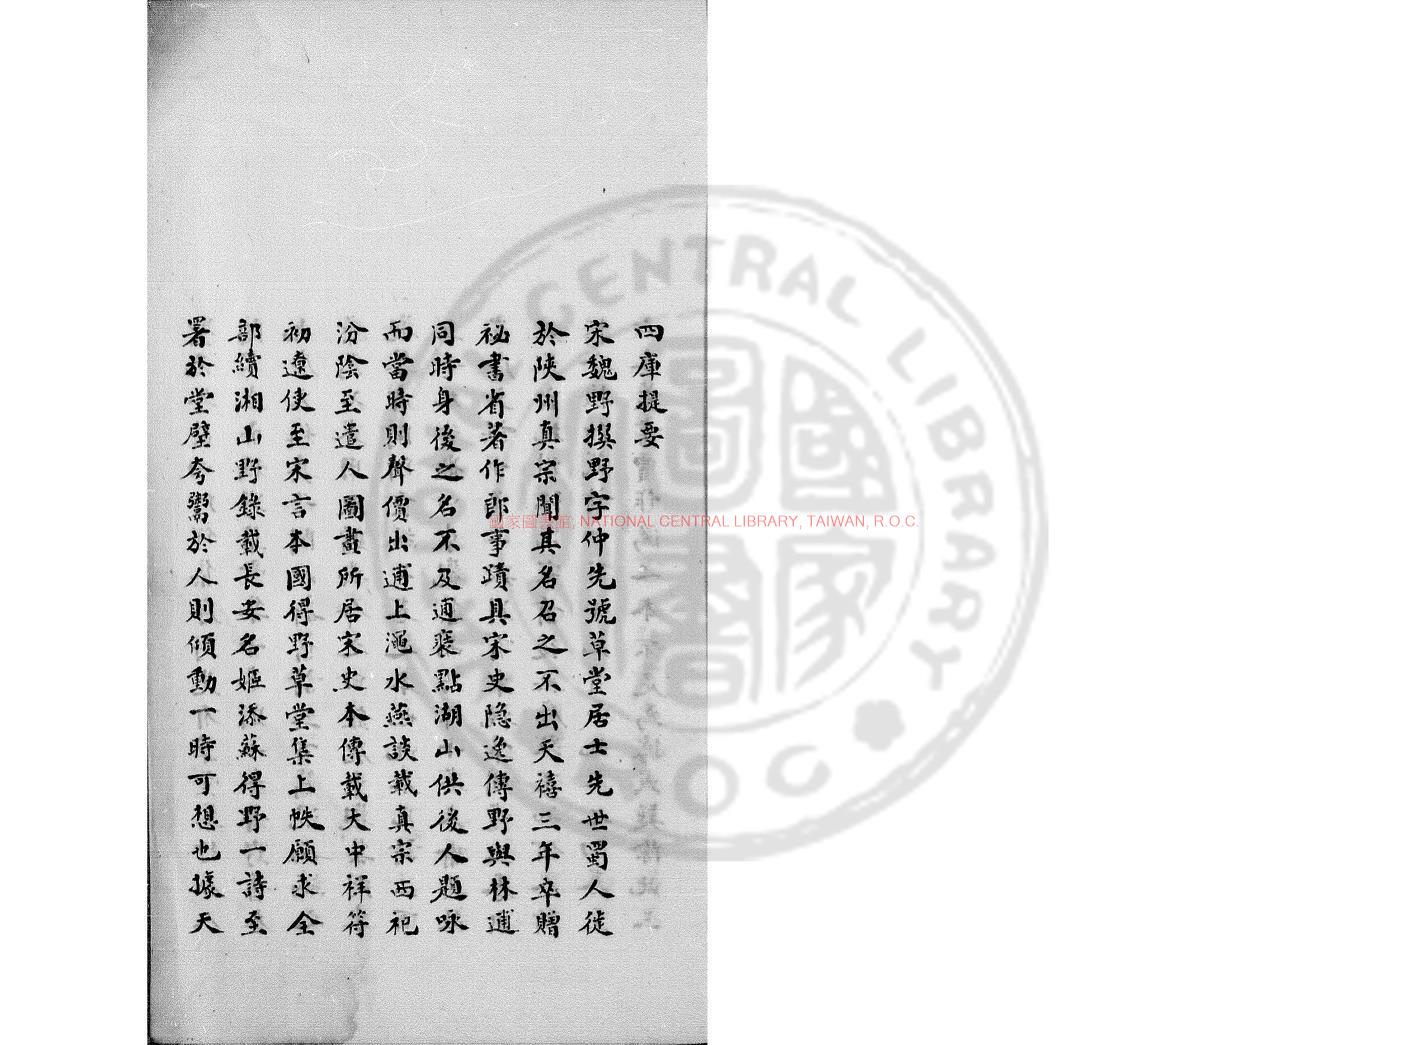 四庫提要
宋魏野撰野字仲先號草堂居士先世蜀人徙
於陜州真宗聞其名召之不出天禧三年卒贈
祕書省著作郎事蹟具宋史隐逸傳野與林逋
同時身後之名不及逋裴點湖山供後人題咏
而當時則聲價出逋上澠水燕談載真宗西祀
汾陰至遣人圖畫所居宋史本傳載大中祥符
初遼使至宋言本國得野草堂集上帙願求全
部續湘山野錄載長安名姬添蘇得野一詩至
署於堂壁夸鬻於人則傾動一時可想也據天
國家圖書館, NATIONAL CENTRAL LIBRARY, TAIWAN, R.O.C.
CENTRAL LIBRARY